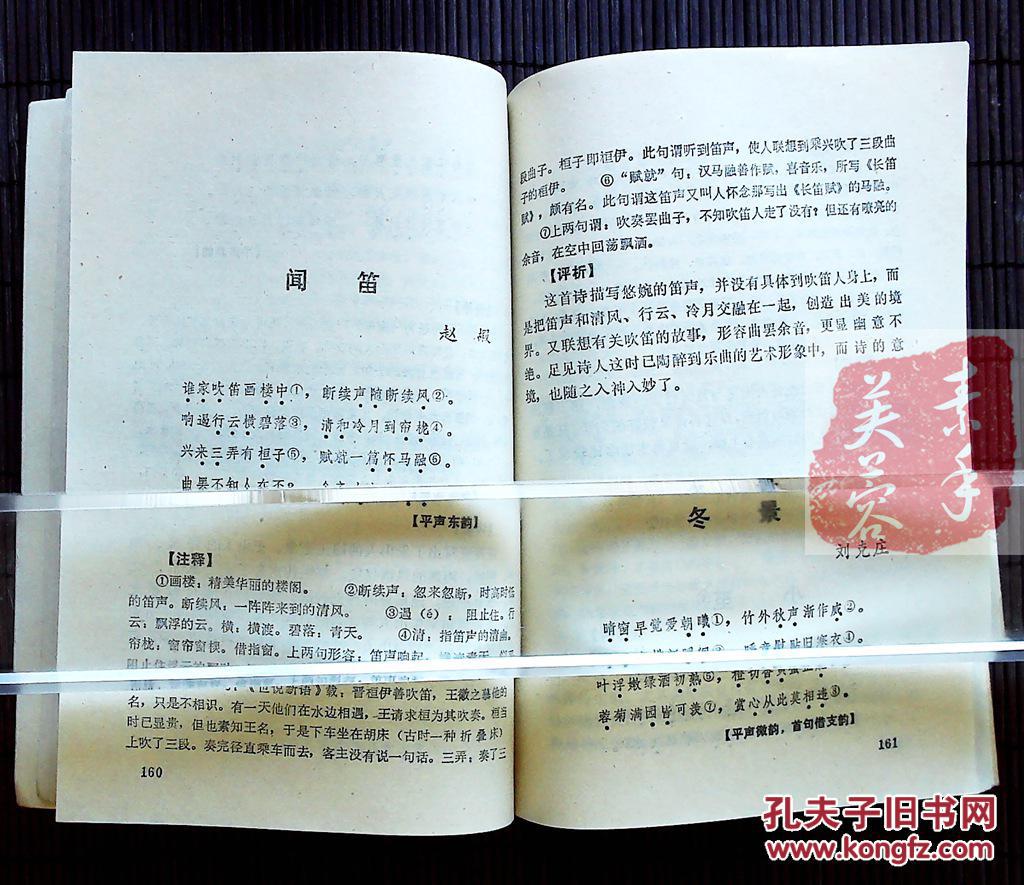 闻 笛
赵 嘏
谁家吹笛画楼中①，断续声随断续风②。
响遏行云横碧落③，清和冷月到帘栊④。
兴来三弄有桓子⑤，赋就一篇怀马融⑥。
曲罢不知人在不？
【平声东韵】
【注释】
①画楼：精美华丽的楼阁。 ②断续声：忽来忽断，时高时低
的笛声。断续风：一阵阵来到的清风。 ③遏（é）：阻止住。行
云：飘浮的云。横：横渡。碧落：青天。 ④清：指笛声的清幽。
帘栊：窗帘窗棂。借指窗。上两句形容：笛声响起，
阻止住浮云的
《世说新语》载：晋桓伊善吹笛，王徽之慕他的
名，只是不相识。有一天他们在水边相遇，王请求桓为其吹奏。桓当
时已显贵，但也素知王名，于是下车坐在胡床（古时一种折叠床）
上吹了三段。奏完径直乘车而去，客主没有说一句话。三弄：奏了三
160
段曲子。桓子即桓伊。此句谓听到笛声，使人联想到乘兴吹了三段曲
子的桓伊。 ⑥“赋就”句：汉马融善作赋，喜音乐，所写《长笛
赋》，颇有名。此句谓这笛声又叫人怀念那写出《长笛赋》的马融。
⑦上两句谓：吹奏罢曲子，不知吹笛人走了没有？但还有嘹亮的
余音，在空中回荡飘洒。
【评析】
这首诗描写悠婉的笛声，并没有具体到吹笛人身上，而
是把笛声和清风、行云、冷月交融在一起，创造出美的境
界。又联想有关吹笛的故事，形容曲罢余音，更显幽意不
绝。足见诗人这时已陶醉到乐曲的艺术形象中，而诗的意
境，也随之入神入妙了。
冬 景
刘克庄
晴窗早觉爱朝曦①，竹外秋声渐作威②。
旧寒衣④。
叶浮嫩绿酒初熟⑤，橙切香黄蟹正
蓉菊满园皆可羡⑦，赏心从此莫相违⑧。
【平声微韵，首句借支韵】
161
素手
芙蓉
孔夫子旧书网
www.kongfz.com